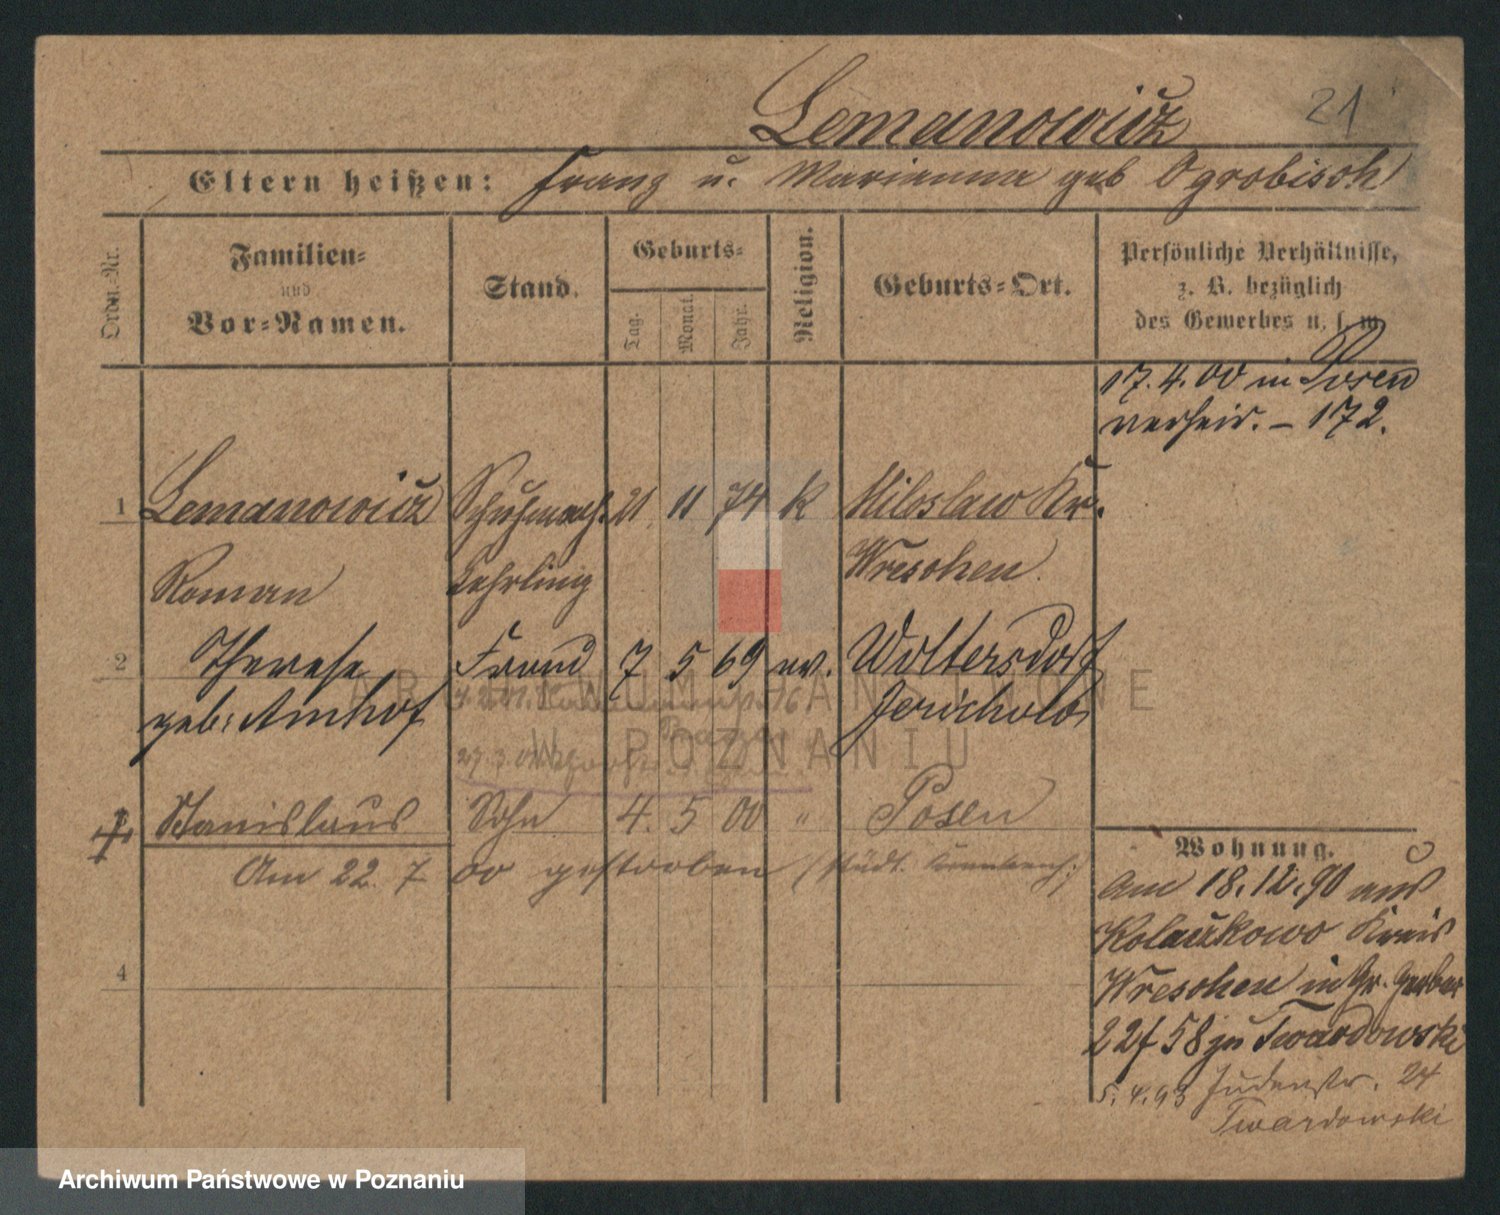 Lemanowicz
21
Eltern heißen: Franz u. Marianna geb Ogrobisch
Ordn.-Nr.
Familien-
und
Vor-Namen.
Stand.
Geburts-
Tag.
Monat.
Jahr.
Religion.
Geburts-Ort.
Persönliche Verhältnisse,
z. B. bezüglich
des Gewerbes u. s. w.
17.4.00 in Posen
verheir. – 172.
1 Lemanowicz Schuhmach. 21 11 74 k Miloslaw Kr.
Roman Lehrling Wreschen
2 Therese 7 5 69 ev. Woltersdorf
geb. Amhof
ARCHIWUM PAŃSTWOWE
W POZNANIU
27.3.
Stanislaus Sohn 4. 5 00 " Posen
Am 22. 7 00 gestorben (städt.
4
Wohnung.
Am 18.12.90 aus
Kolaczkowo Kreis
Wreschen in Gr. Gerber
58 zu Twardowski
5.4.93 Judenstr. 24
Twardowski
Archiwum Państwowe w Poznaniu